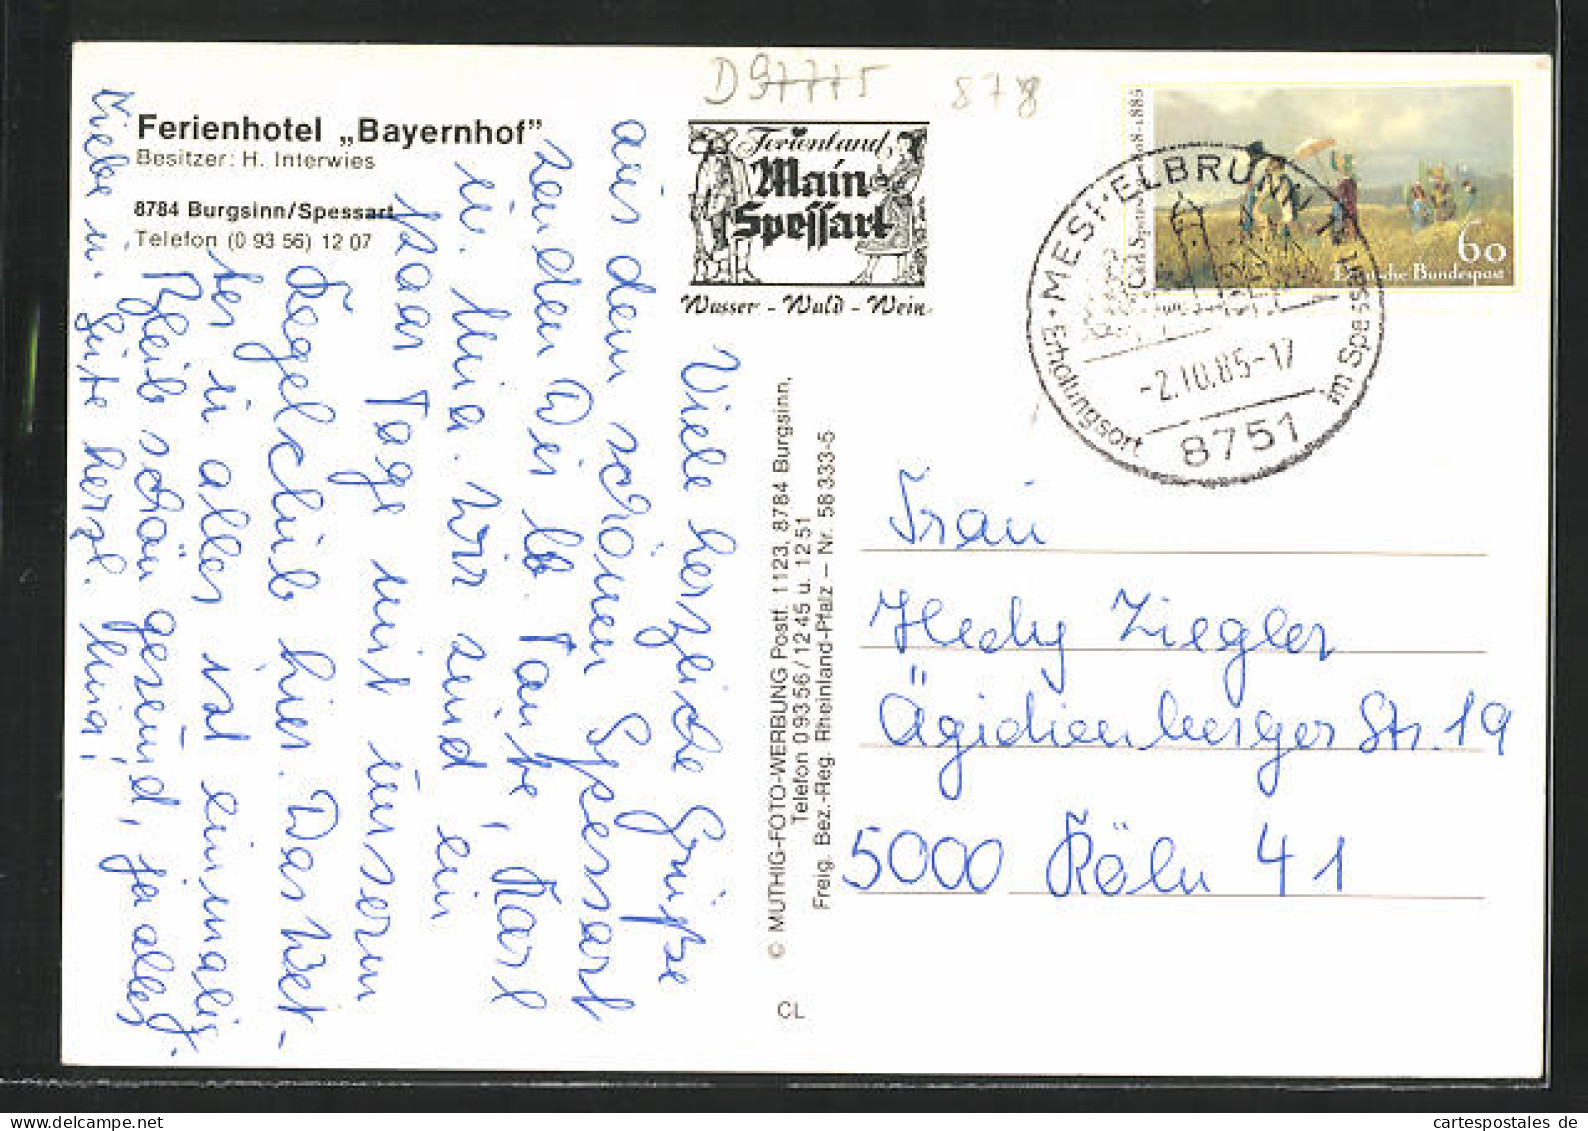 D 97775
878
Ferienhotel „Bayernhof"
Besitzer: H. Interwies
8784 Burgsinn/Spessart
Telefon (0 93 56) 12 07
Ferienland
Main
Spessart
Wasser - Wald - Wein
Carl Spitzweg 1808-1885
60
Deutsche Bundespost
MESPELBRUNN 1
-2.10.85-17
8751
Erholungsort
im Spessart
Viele herzliche Grüße
aus dem schönen Spessart
senden Dir lb. Tante, Karl
u. Mia. Wir sind ein
paar Tage mit unserm
Kegelclub hier. Das Wet-
ter u alles ist einmalig.
Bleib schön gesund, ja alles
Liebe u. Gute herzl. Mia,
© MUTHIG-FOTO-WERBUNG Postf. 1123, 8784 Burgsinn,
Telefon 0 93 56 / 12 45 u. 12 51
Freig. Bez.-Reg. Rheinland-Pfalz – Nr. 58 333-5
CL
Frau
Hedy Ziegler
Ägidienberger Str. 19
5000 Köln 41
cartespostales de